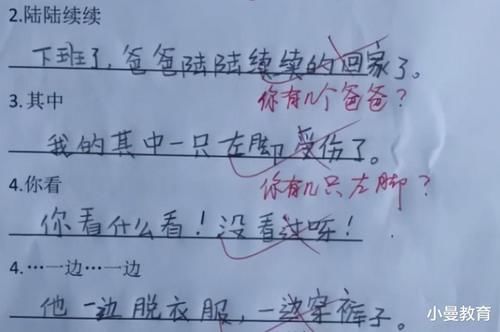 2.陆陆续续
下班了,爸爸陆陆续续的回家了。
你有几个爸爸?
3.其中
我的其中一只左脚受伤了。
你有几只左脚?
4.你看
你看什么看!没看过呀!
4.…一边…一边
他一边脱衣服,一边穿裤子。
小曼教育